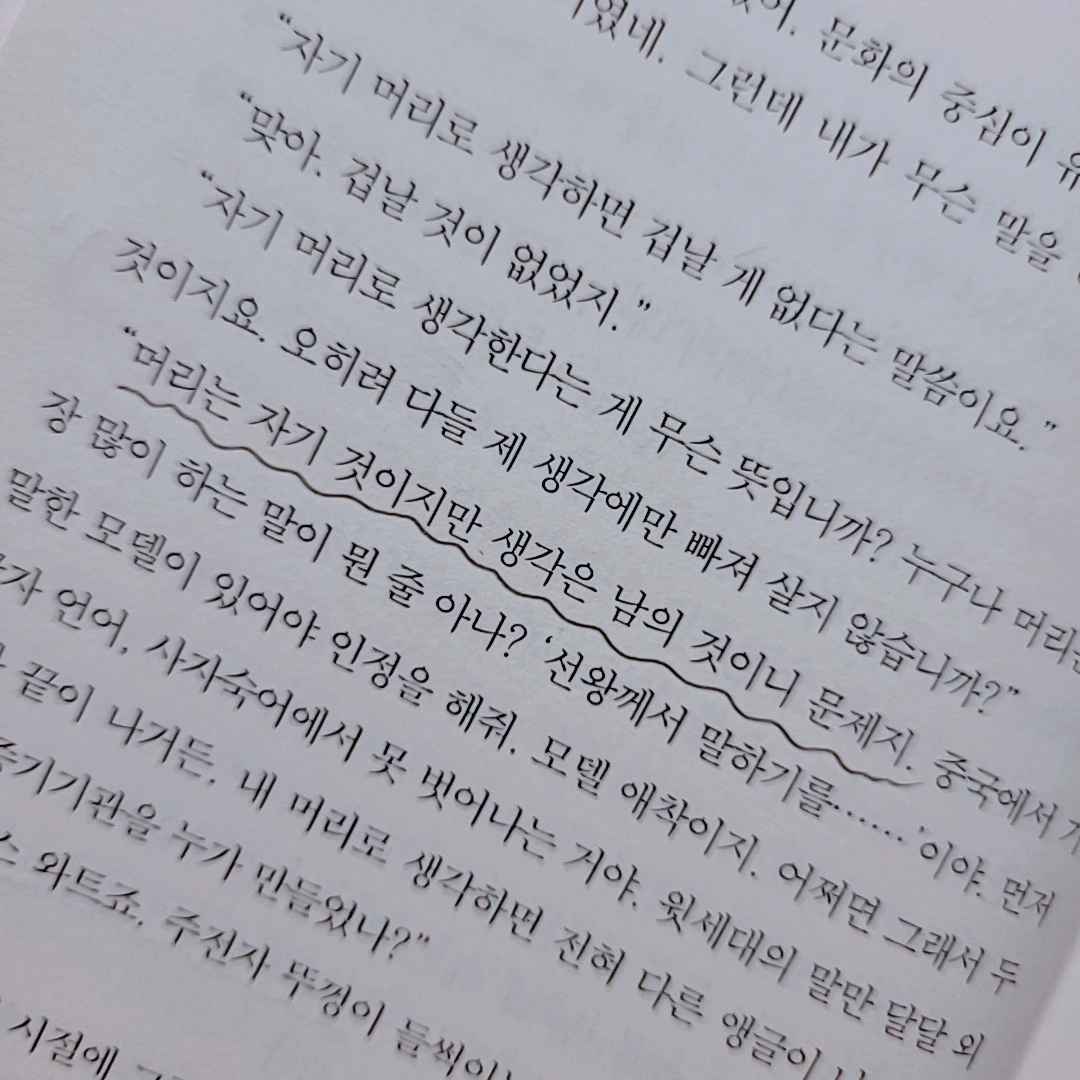 문화의 중심이
그런데 내가 무슨 말을
“자기 머리로 생각하면 겁날 게 없다는 말씀이요.”
“맞아. 겁날 것이 없었지.”
“자기 머리로 생각한다는 게 무슨 뜻입니까? 누구나 머리는
것이지요. 오히려 다들 제 생각에만 빠져 살지 않습니까?”
“머리는 자기 것이지만 생각은 남의 것이니 문제지. 중국에서 가
장 많이 하는 말이 뭔 줄 아나? ‘선왕께서 말하기를……’이야. 먼저
말한 모델이 있어야 인정을 해줘. 모델 애착이지. 어쩌면 그래서 두
언어, 사자숙어에서 못 벗어나는 거야. 윗세대의 말만 달달 외
끝이 나거든. 내 머리로 생각하면 전혀 다른 앵글이
증기기관을 누가 만들었나?”
와트죠. 주전자 뚜껑이
시절에